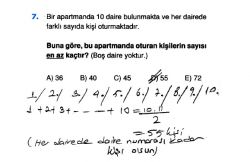 7. Bir apartmanda 10 daire bulunmakta ve her dairede
farklı sayıda kişi oturmaktadır.
Buna göre, bu apartmanda oturan kişilerin sayısı
en az kaçtır? (Boş daire yoktur.)
A) 36 B) 40 C) 45 D) 55 E) 72
1. / 2. / 3. / 4. / 5. / 6. / 7. / 8. / 9. / 10.
1 + 2 + 3 + --- + 10 = 10.11
2
= 55 kişi
(Her dairede daire numarası kadar
kişi olsun)